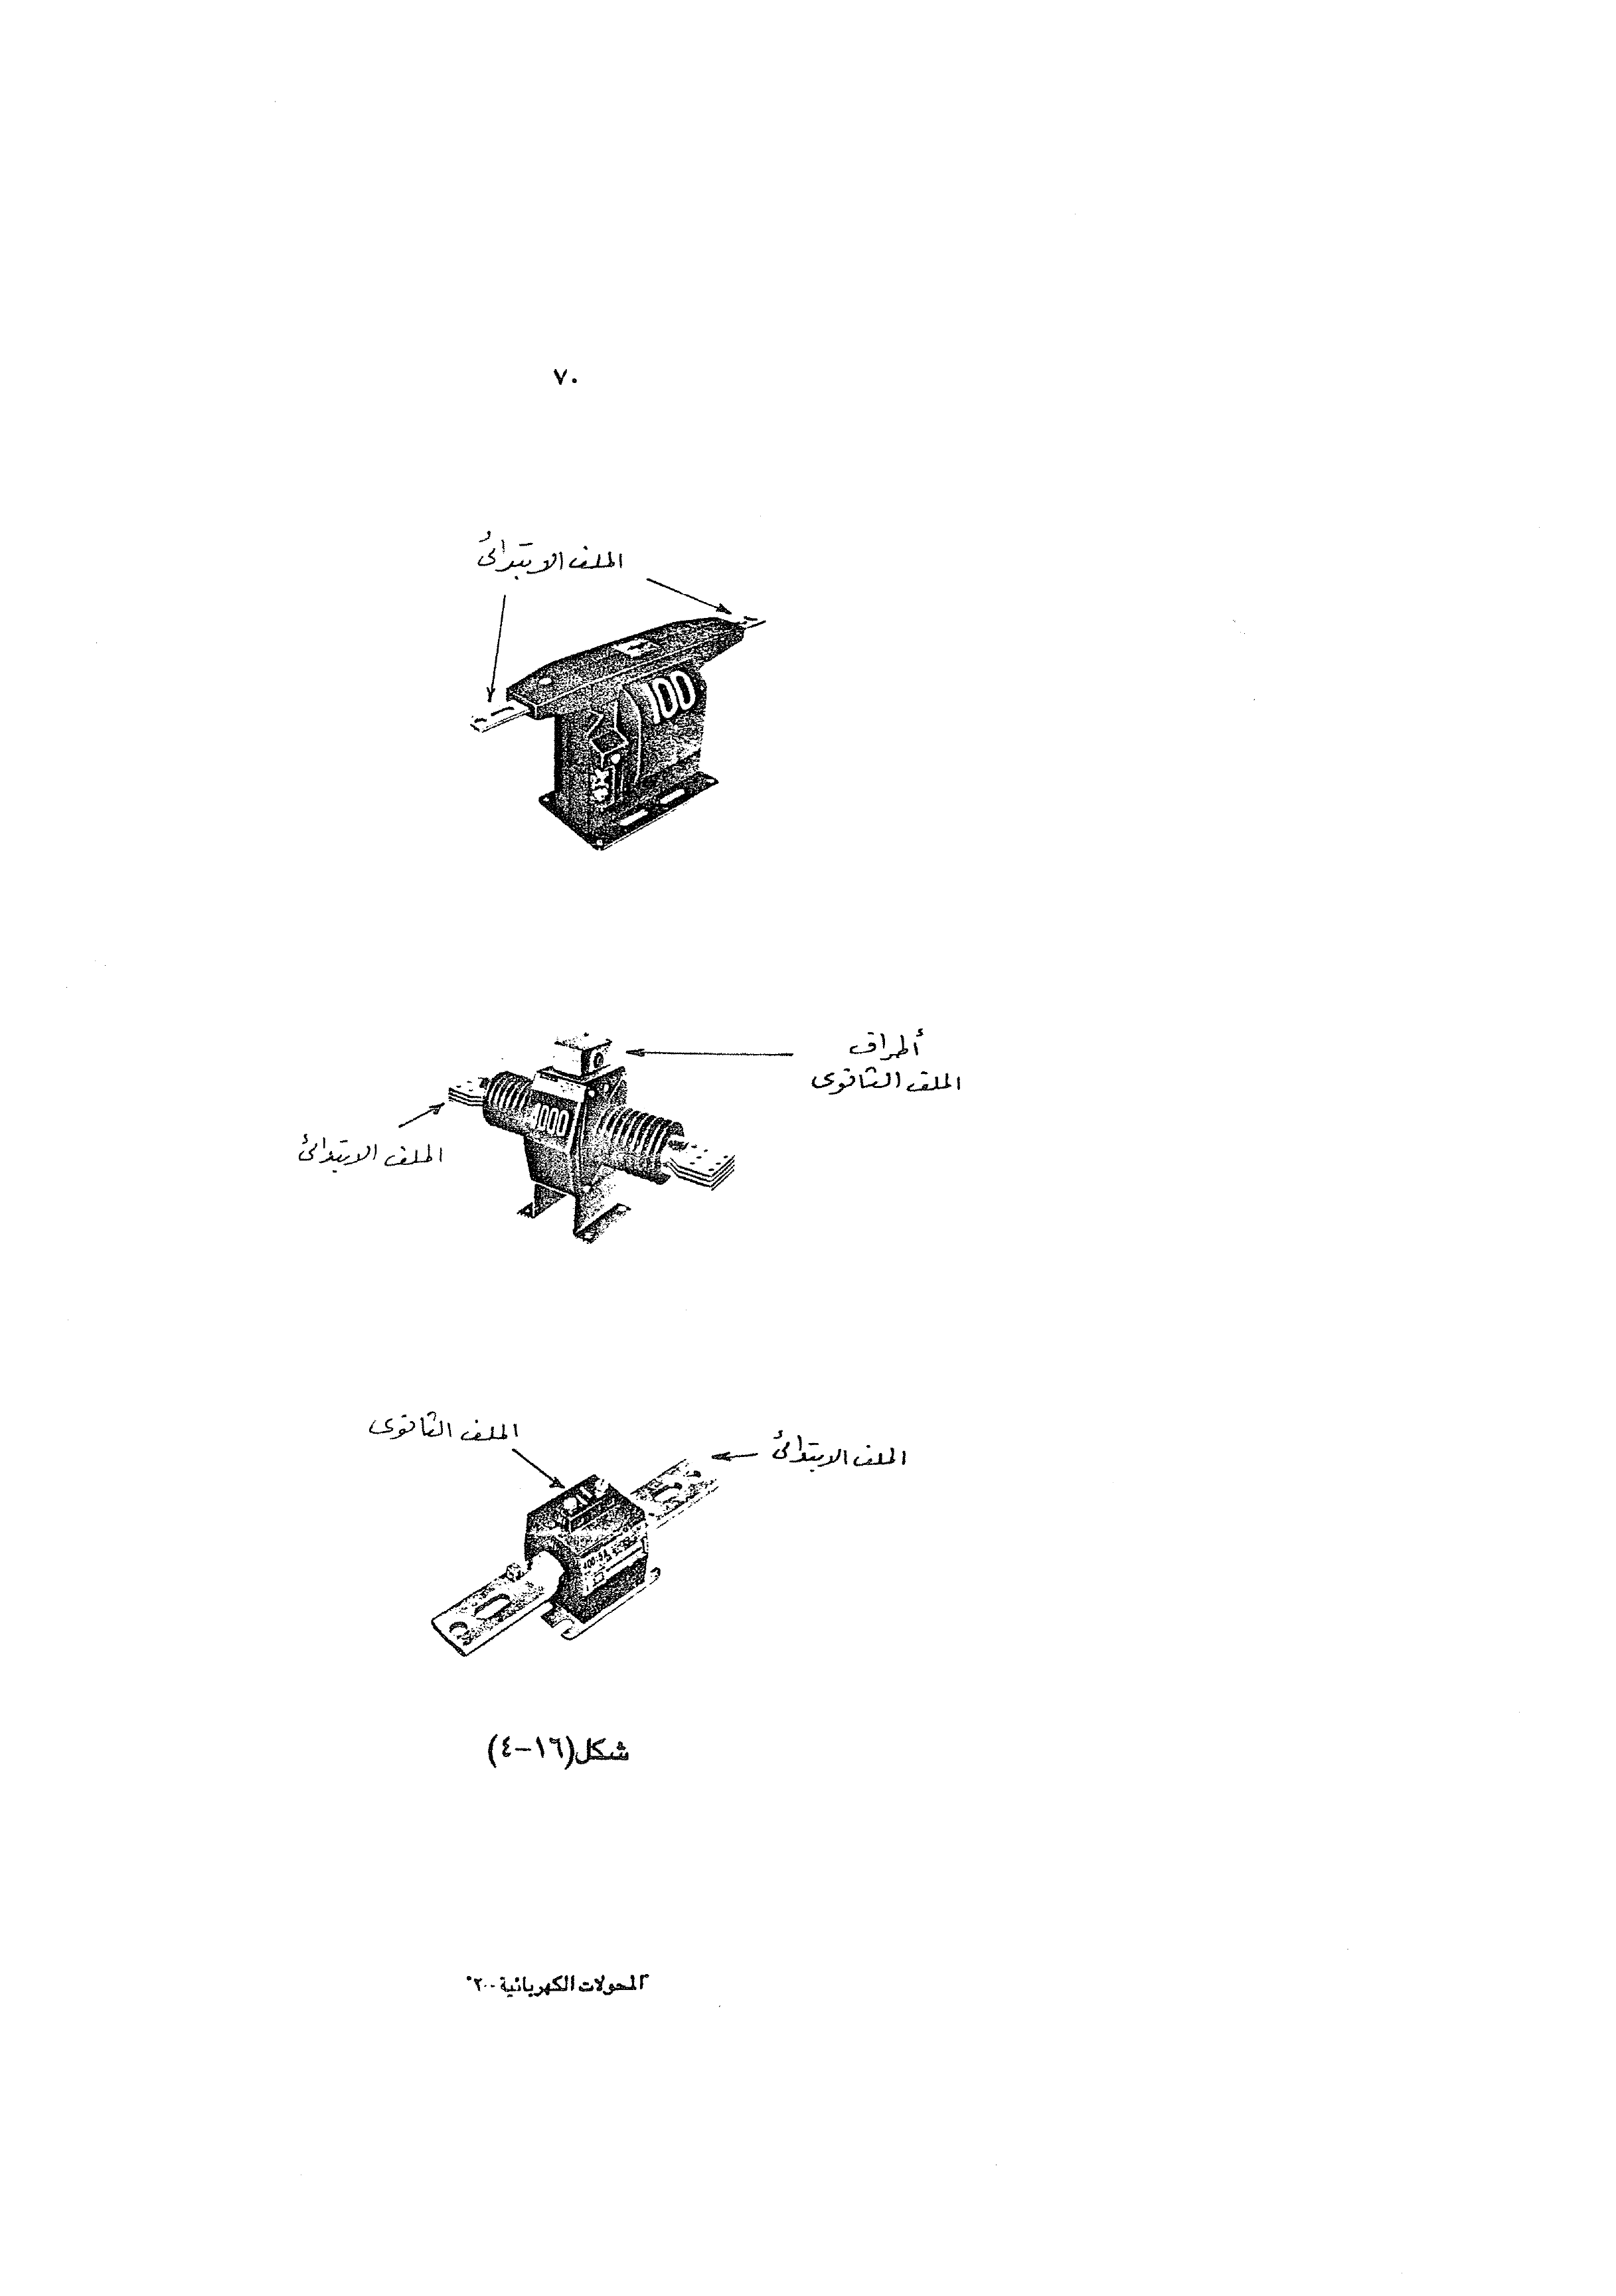 ٧٠
الملف الابتدائى
100
أطراف
الملف الثانوى
1000
الملف الابتدائى
الملف الثانوى
الملف الابتدائى
شكل(١٦-٤)
"المحولات الكهربائية